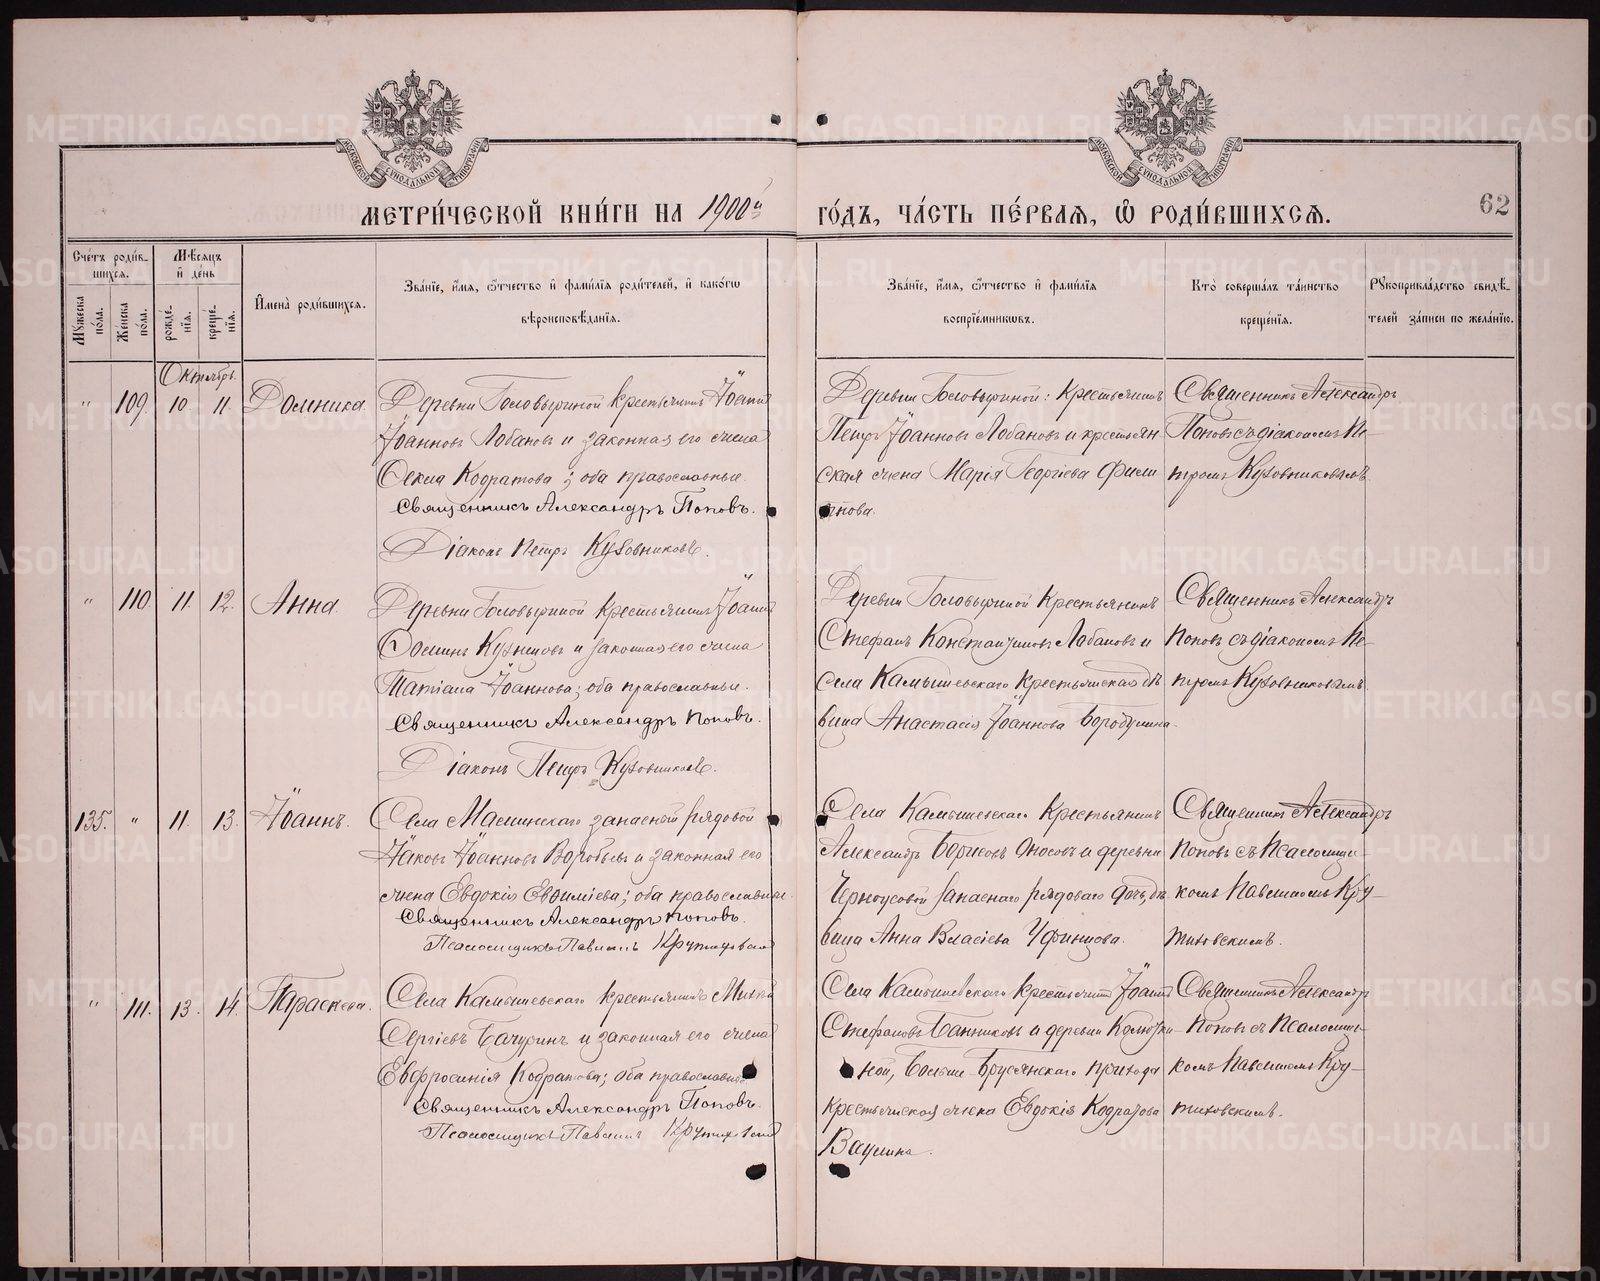 МЕТРИ́ЧЕСКОЙ КНИ́ГИ НА 1900й ГО́ДЪ, ЧА́СТЬ ПЕ́РВАЯ, Ѽ РОДИ́ВШИХСѦ.
62
Сче́тъ роди́в-
шихся.
Мѣ́сяцъ
и҆ де́нь
Му́жеска
по́ла.
Же́нска
по́ла.
рожде́-
нїя.
креще́-
нїя.
И҆мена̀ роди́вшихся.
Зва́нїе, и҆́мя, ѻ҆́тчество и҆ фами́лїя роди́телей, и҆ како́гѡ
вѣроисповѣ́данїя.
Зва́нїе, и҆́мя, ѻ҆́тчество и҆ фами́лїя
воспрїе́мникѡвъ.
Кто̀ соверша́лъ та́инство
креще́нїя.
Рꙋкоприкла́дство свидѣ́-
телей за́писи по жела́нїю.
Октябрь
" 109. 10 11. Домника.
Деревни Головыриной крестьянинъ Іоаннъ
Іоанновъ Лобановъ и законная его жена
Ѳекла Кодратова; оба православные.
Священникъ Александръ Поповъ.
Діаконъ Петръ Кузовниковъ.
Деревни Головыриной: крестьянинъ
Петръ Іоанновъ Лобановъ и крестьян
ская жена Марія Георгіева Фили
пнова.
Священникъ Александръ
Поповъ съ діакономъ Пе-
тромъ Кузовниковымъ.
" 110. 11. 12. Анна.
Деревни Головыриной крестьянинъ Іоаннъ
Ѳоминъ Кузнецовъ и законная его жена
Татіана Іоаннова; оба православные.
Священникъ Александръ Поповъ.
Діаконъ Петръ Кузовниковъ.
Деревни Головыриной крестьянинъ
Стефанъ Константиновъ Лобановъ и
села Камышевскаго крестьянская дѣ
вица Анастасія Іоаннова Бородулина.
Священникъ Александръ
Поповъ съ діакономъ Пе-
тромъ Кузовниковымъ.
135. " 11. 13. Іоаннъ.
Села Маминскаго запасной рядовой
Іаковъ Іоанновъ Воробьевъ и законная его
жена Евдокія Евѳиміева; оба православные.
Священникъ Александръ Поповъ.
Псаломщикъ Павелъ
Села Камышевскаго крестьянинъ
Александръ Борисовъ Оносовъ и деревни
Черноусовой запаснаго рядоваго дочь, дѣ
вица Анна Власіева Уфинцова.
Священникъ Александръ
Поповъ съ Псаломщи-
комъ Павломъ Кру-
тиховскимъ.
" 111. 13. 14. Параскева.
Села Камышевскаго крестьянинъ
Сергіевъ Бачуринъ и законная его жена
Евфросинія Кодратова; оба православные
Священникъ Александръ Поповъ.
Псаломщикъ Павелъ
Села Камышевскаго крестьянинъ Іоаннъ
Стефановъ Банниковъ и деревни Колютки-
ной, Больше-Брусянскаго прихода
крестьянская жена Евдокія Кодратова
Ваулина.
Священникъ Александръ
Поповъ съ Псаломщи-
комъ Павломъ Кру-
тиховскимъ.
METRIKI.GASO-URAL.RU